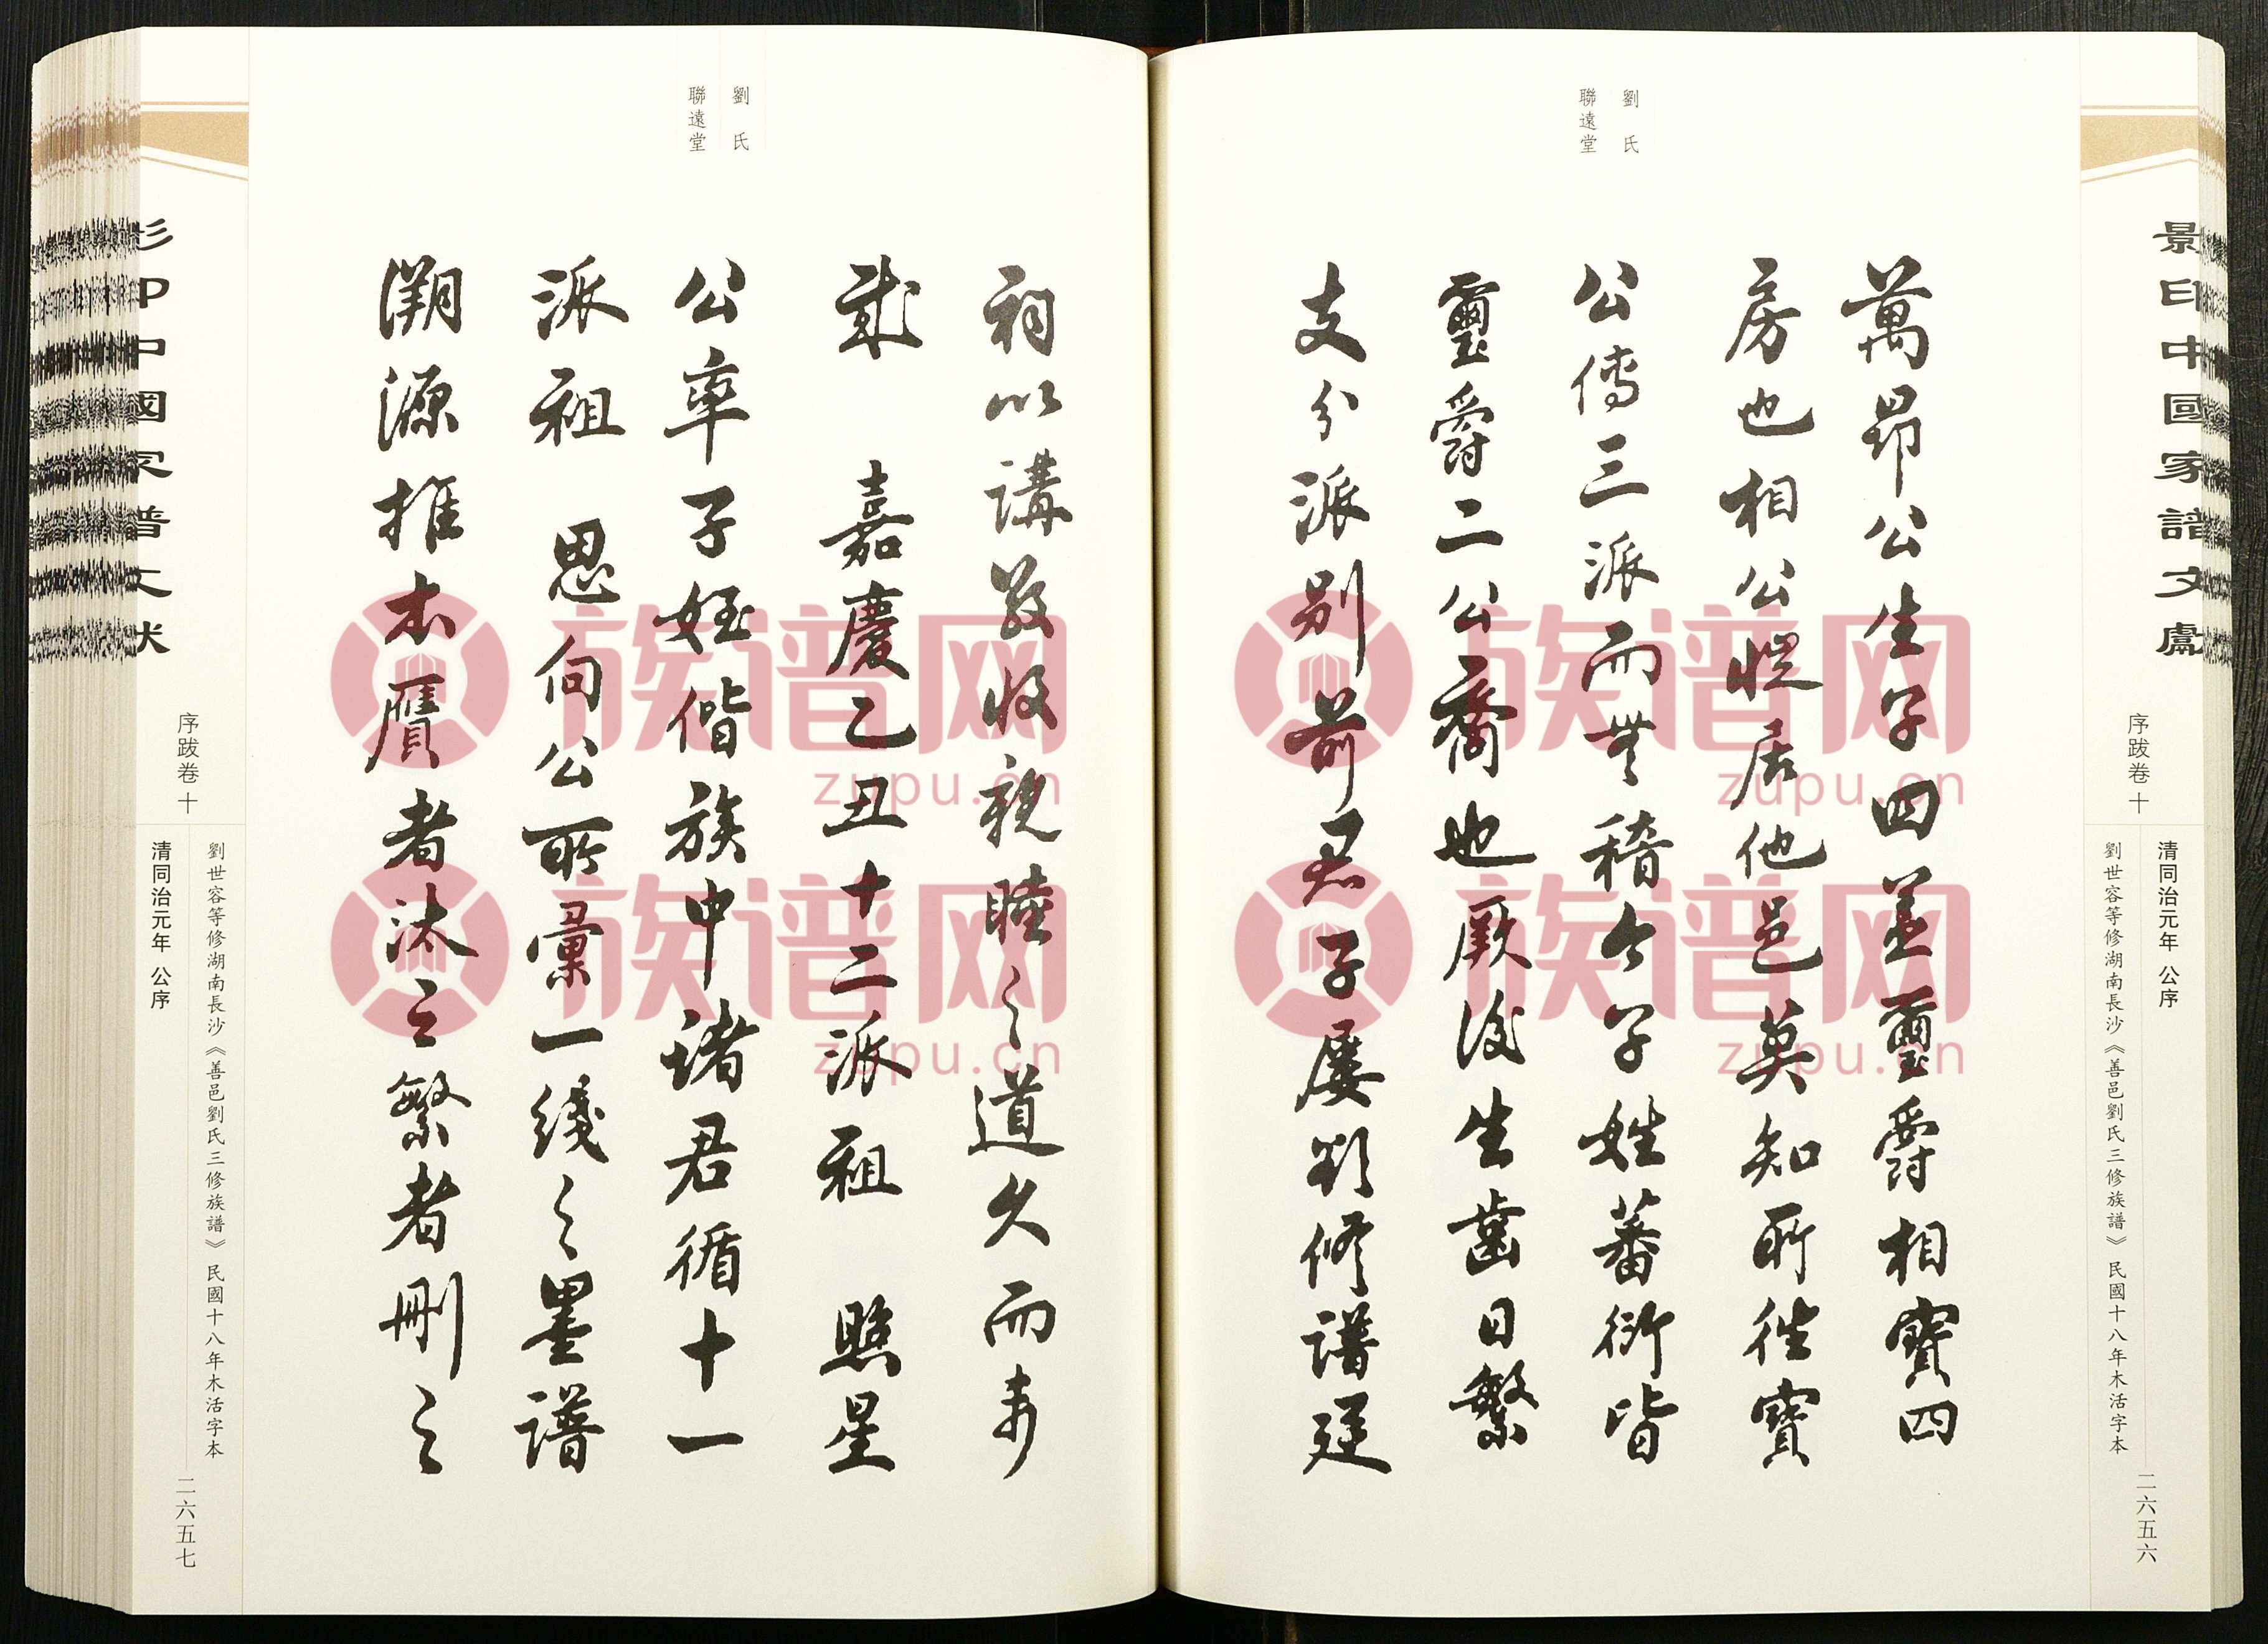 景印中國家譜文獻
序跋卷十
清同治元年 公序
劉世容等修湖南長沙《善邑劉氏三修族譜》民國十八年木活字本
二六五六
劉氏
聯遠堂
萬昂公生子四蓋璽爵相寶四
房也相公惺居他邑莫知所往寶
公傳三派而無稽今子姓蕃衍皆
璽爵二公裔也厥後生齒日繁
支分派別前君子屢欲修譜建
劉氏
聯遠堂
祠以講敦收親睦之道久而未
就 嘉慶乙丑十二派祖 照星
公率子姪偕族中諸君循十一
派祖 思向公所彙一綫之墨譜
溯源推本贋者汰之繁者刪之
序跋卷十
清同治元年 公序
劉世容等修湖南長沙《善邑劉氏三修族譜》民國十八年木活字本
二六五七
族谱网
zupu.cn
族谱网
zupu.cn
族谱网
zupu.cn
族谱网
zupu.cn